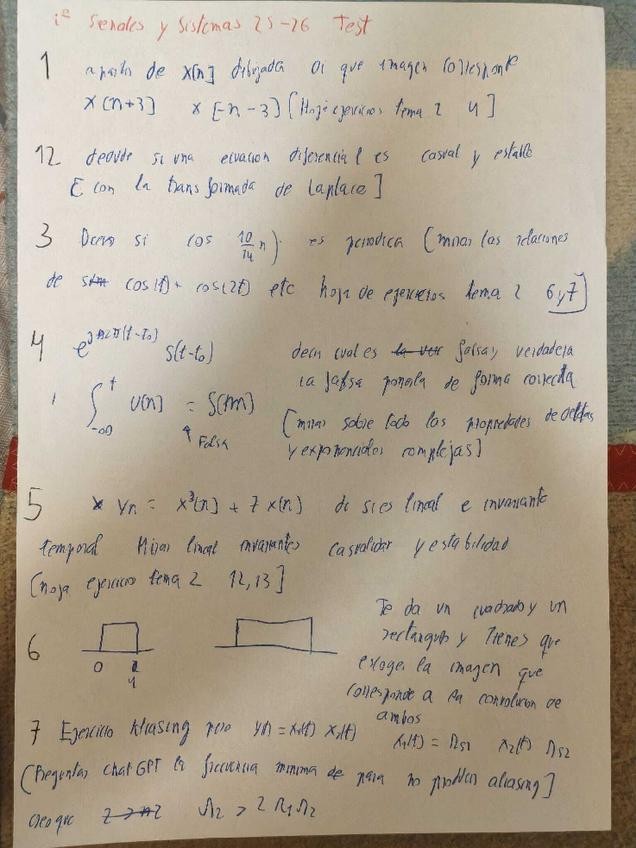 1º Señales y Sistemas 25-26 Test
1 a partir de x[n] dibujada Di que imagen corresponde
x[n+3] x[-n-3] [Hoja ejercicios tema 2 4]
12 decide si una ecuacion diferencial es casual y estable
[con la transformada de Laplace]
3 Decir si cos 10/14 n). es periodica (mirar las relaciones
de cos(t)+ cos(2t) etc hoja de ejercicios tema 2 6y7]
4 δ(t-t₀) decir cual es falsa y verdadera
la falsa ponerla de forma correcta
∫ t -∞ U(n) = Falsa (mirar sobre todo las propiedades de deltas
y exponenciales complejas]
5 Yn = x³[n] + 7 x[n] di si es lineal e invariante
temporal Mirar lineal invariantes casualidad y estabilidad
[hoja ejercicio tema 2 12,13]
6 0 4 Te da un cuadrado y un
rectangulo y Tienes que
escoger la imagen que
corresponde a la convolucion de
ambos
7 Ejercicio Aliasing pero y(t) = x₁(t) x₂(t) x₁(t) = Ωs1 x₂(t) Ωs2
(Preguntar chat GPT la frecuencia minima para no producir aliasing]
creo que > 2 Ω₁Ω₂